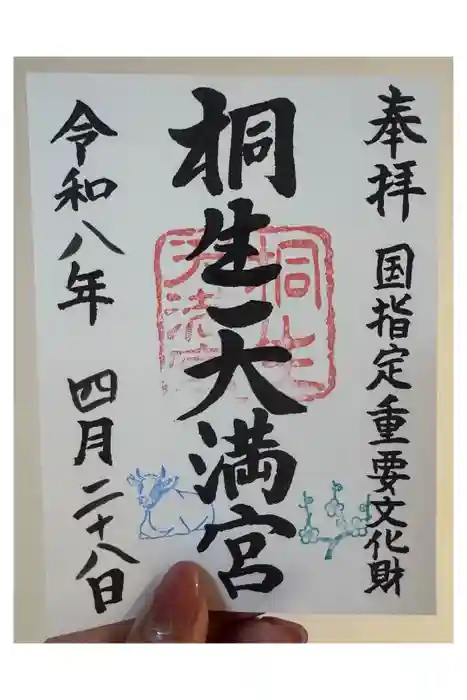 奉拝 国指定重要文化財
桐生天満宮
桐生
天満宮
令和八年 四月二十八日